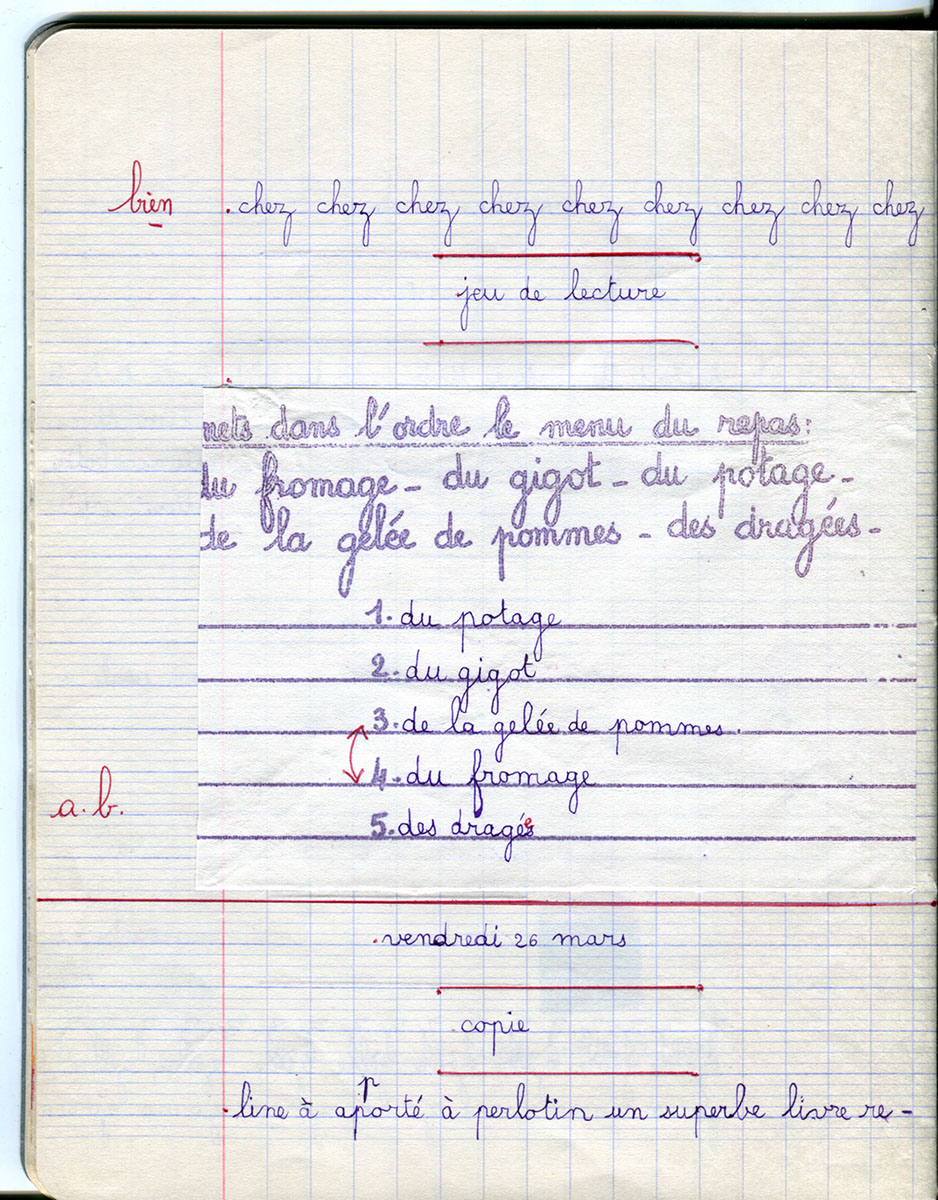 bien . chez chez chez chez chez chez chez chez chez
jeu de lecture
mets dans l'ordre le menu du repas :
du fromage - du gigot - du potage -
de la gelée de pommes - des dragées -
1. du potage
2. du gigot
3. de la gelée de pommes .
4. du fromage
a. b.
5. des dragées
. vendredi 26 mars
. copie
p
. line à aporté à perlotin un superbe livre re -